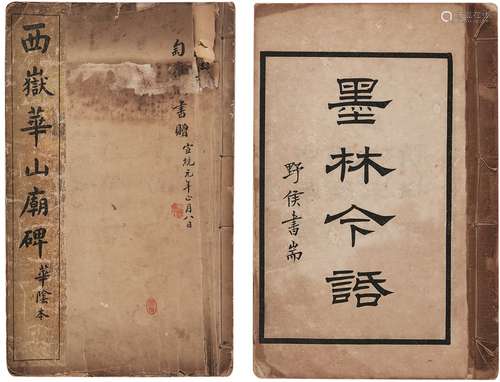 西嶽華山廟碑
華陰本
匋
書贈
宣統元年正月八日
墨林今話
野侯書耑